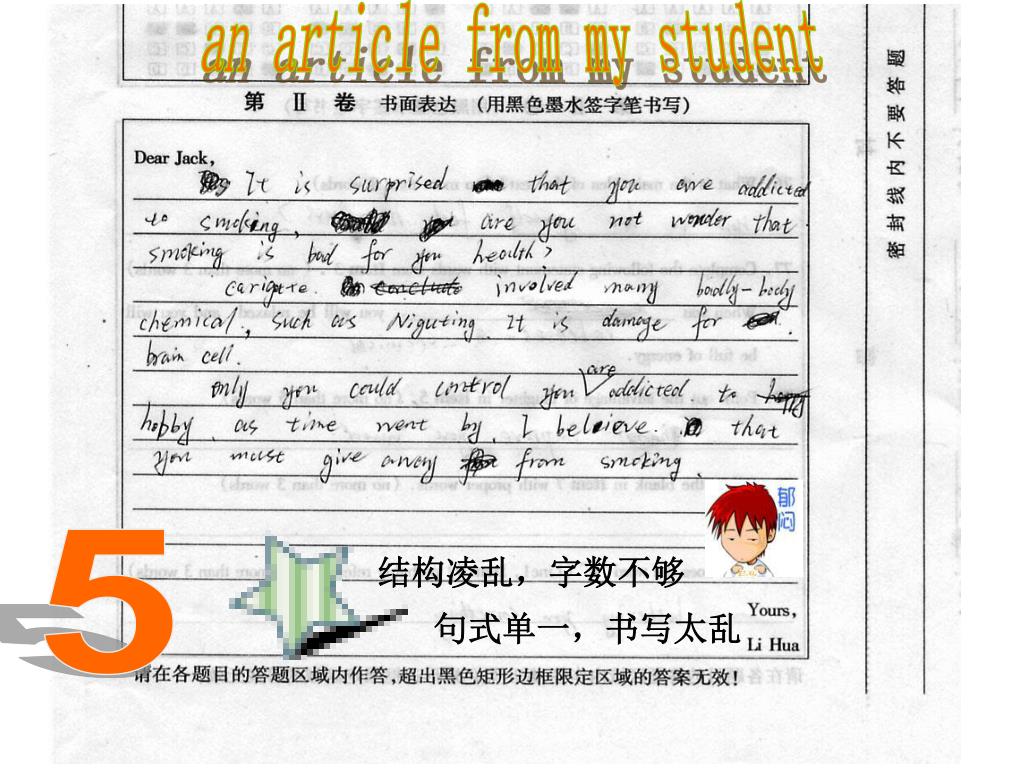 an article from my student
第 Ⅱ 卷 书面表达 (用黑色墨水签字笔书写)
密封线内不要答题
Dear Jack,
It is surprised that you are addicted
to smoking, are you not wonder that
smoking is bad for you health?
carigatre. conclute involved many badly-body
chemical, such as Niguting. It is damage for
brain cell.
only you could control you are addicted to happy
hobby, as time went by, I beleieve. that
you must give away from smoking.
郁闷
5
结构凌乱，字数不够
句式单一，书写太乱
Yours,
Li Hua
请在各题目的答题区域内作答,超出黑色矩形边框限定区域的答案无效!